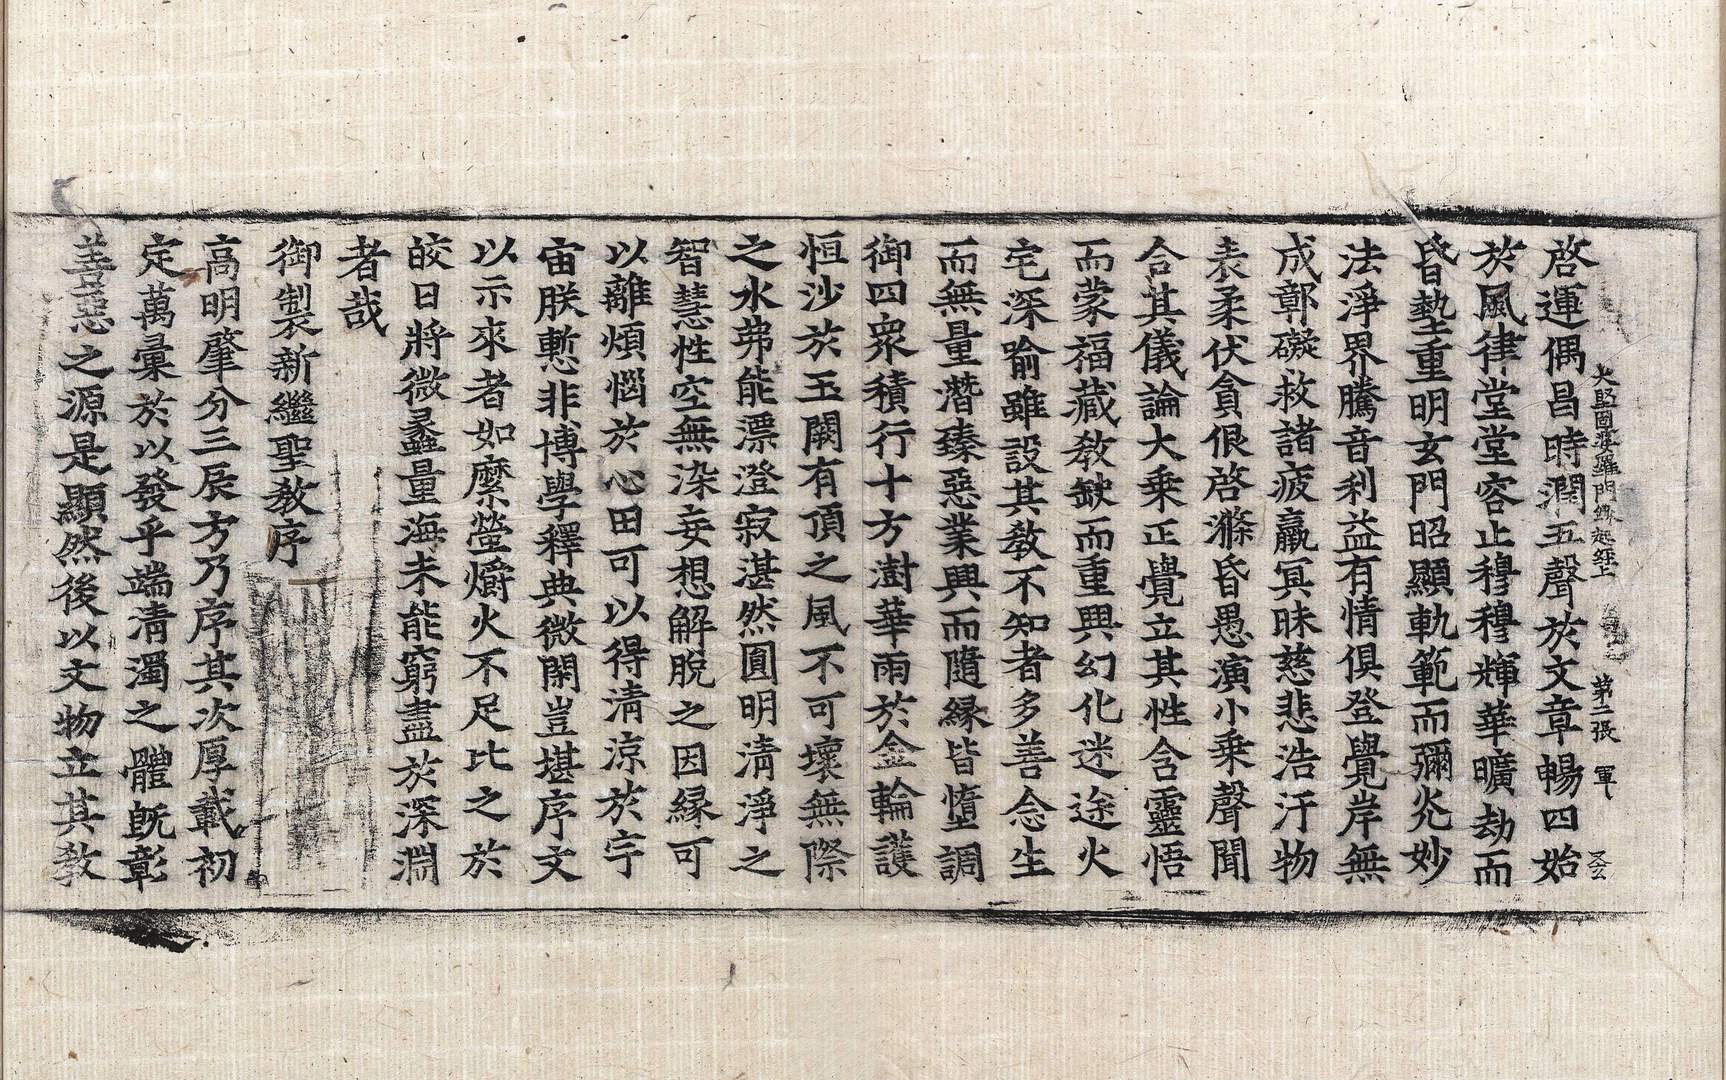 大堅固婆羅門緣起經上 第二張 軍
啓運偶昌時潤五聲於文章暢四始
於風律堂堂容止穆穆輝華曠劫而
昏蟄重明玄門昭顯軌範而彌光妙
法淨界騰音利益有情俱登覺岸無
成鄣礙救諸疲羸冥昧慈悲浩汗物
表柔伏貪佷啓滌昏愚演小乘聲聞
合其儀論大乘正覺立其性含靈悟
而蒙福藏教缺而重興幻化迷途火
宅深喻雖設其教不知者多善念生
而無量潛臻惡業興而隨緣皆墮調
御四衆積行十方澍華雨於金輪護
恒沙於玉闕有頂之風不可壞無際
之水弗能漂澄寂湛然圓明清淨之
智慧性空無染妄想解脫之因緣可
以離煩惱於心田可以得清涼於宇
宙朕慙非博學釋典微閑豈堪序文
以示來者如縻螢爝火不足比之於
皎日將微蠡量海未能窮盡於深淵
者哉
御製新繼聖教序
高明肇分三辰方乃序其次厚載初
定萬彙於以發乎端清濁之體旣彰
善惡之源是顯然後以文物立其教